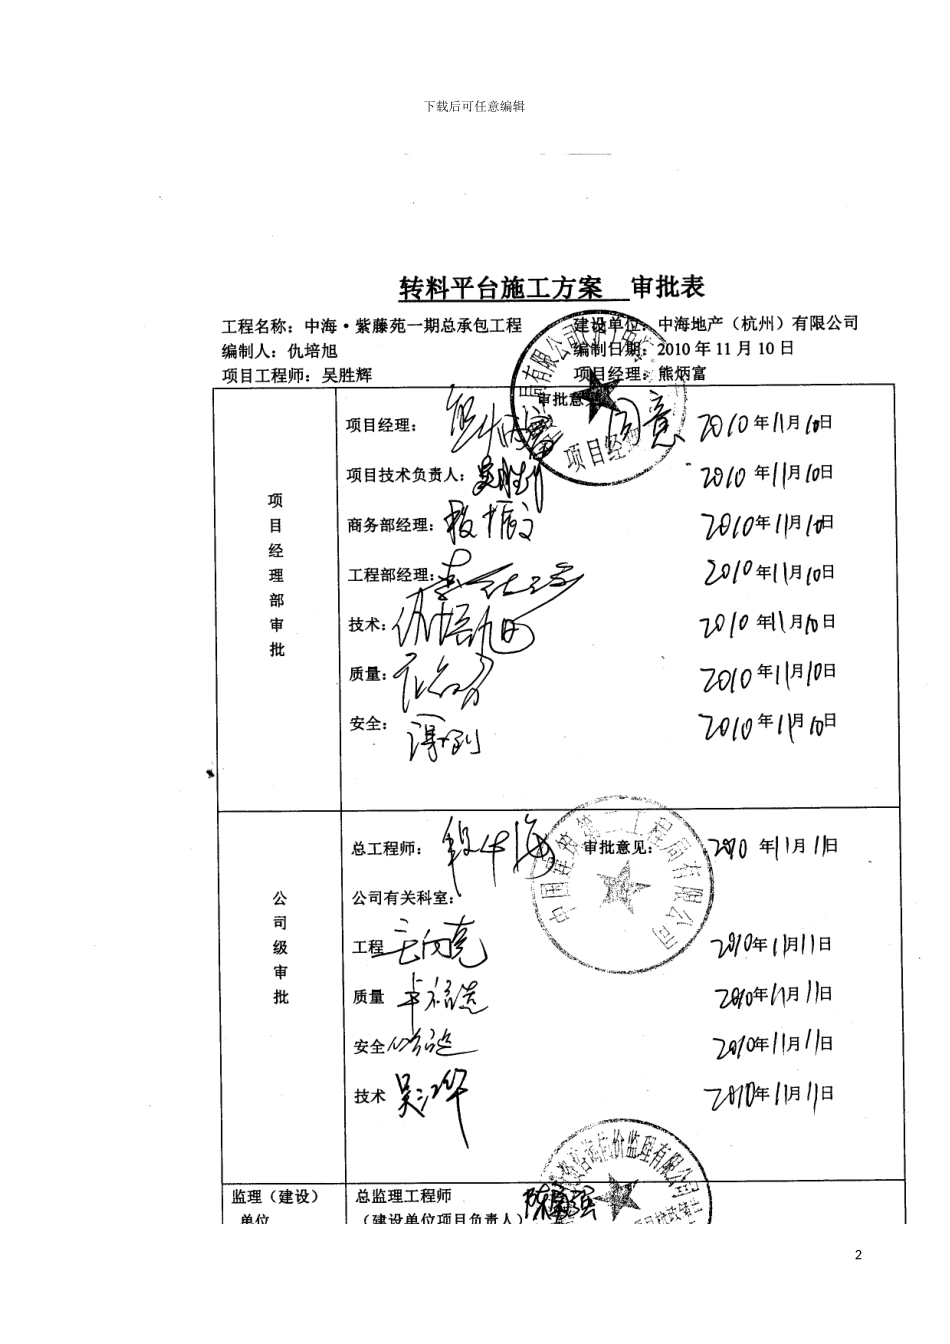 下载后可任意编辑
转料平台施工方案 审批表
工程名称：中海·紫藤苑一期总承包工程 建设单位：中海地产（杭州）有限公司
编制人：仇培旭 编制日期：2010 年 11 月 10 日
项目工程师：吴胜辉 项目经理：熊炳富
项目经理部审批
审批意见：同意
项目经理： 熊炳富 2010年11月10日
项目技术负责人：吴胜辉 2010年11月10日
商务部经理： 2010年11月10日
工程部经理： 2010年11月10日
技术：仇培旭 2010年11月10日
质量： 2010年11月10日
安全： 2010年11月10日
项目经
公司级审批
总工程师： 审批意见： 2010年11月11日
公司有关科室：
工程 王向亮 2010年11月11日
质量 2010年11月11日
安全 2010年11月11日
技术 吴江华 2010年11月11日
中国建筑第二工程局有限公司
监理（建设）单位
总监理工程师
（建设单位项目负责人）
价监理有限公司
2